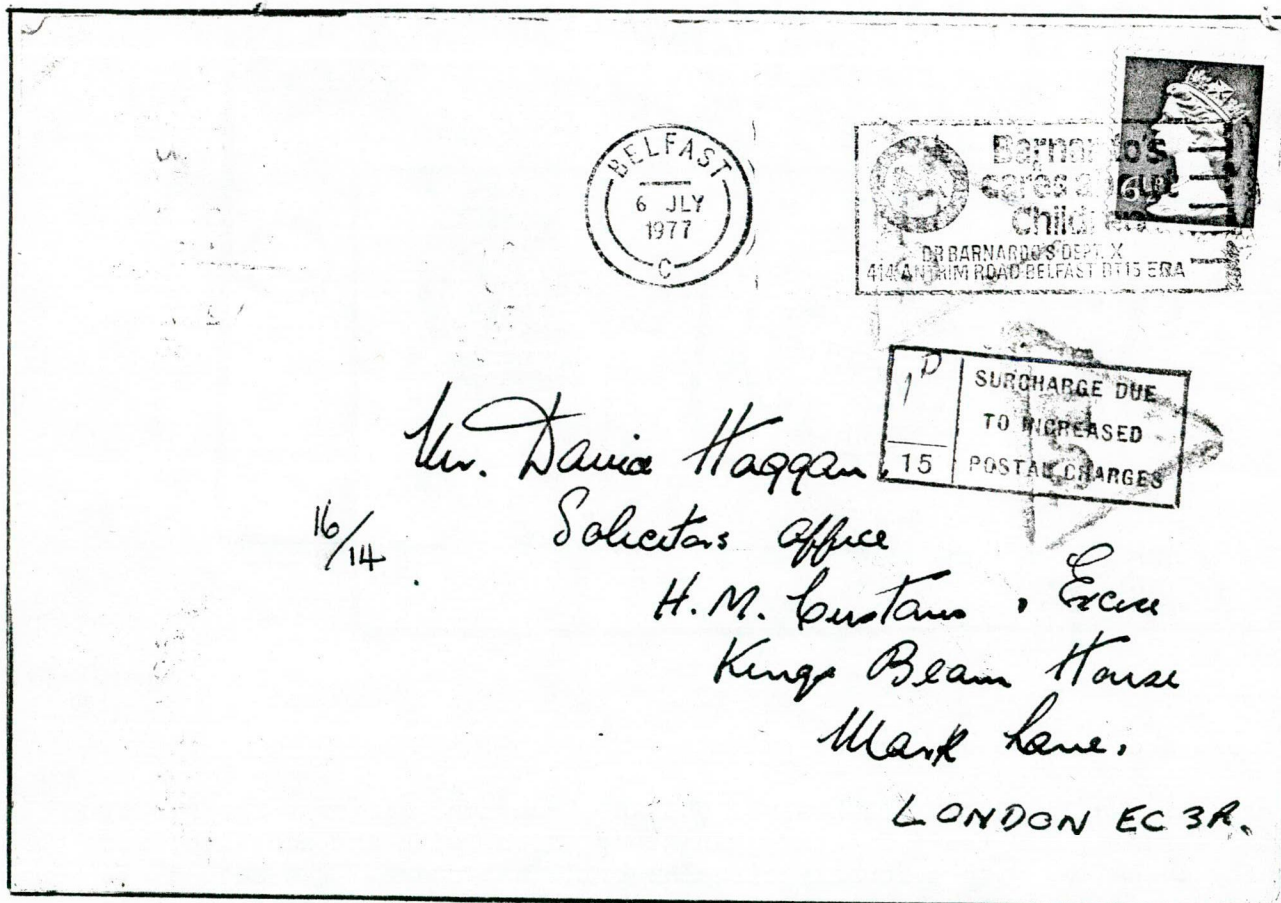 BELFAST
6 JLY
1977
C
Barnardo's
cares about
Children
DR BARNARDO'S DEPT. X
414 ANTRIM ROAD BELFAST BT15 ERA
1D
15
SURCHARGE DUE
TO INCREASED
POSTAL CHARGES
Mr. David Haggan,
Solicitors Office
16/14
H.M. Customs , Excise
Kings Beam House
Mark Lane.
LONDON EC3R.